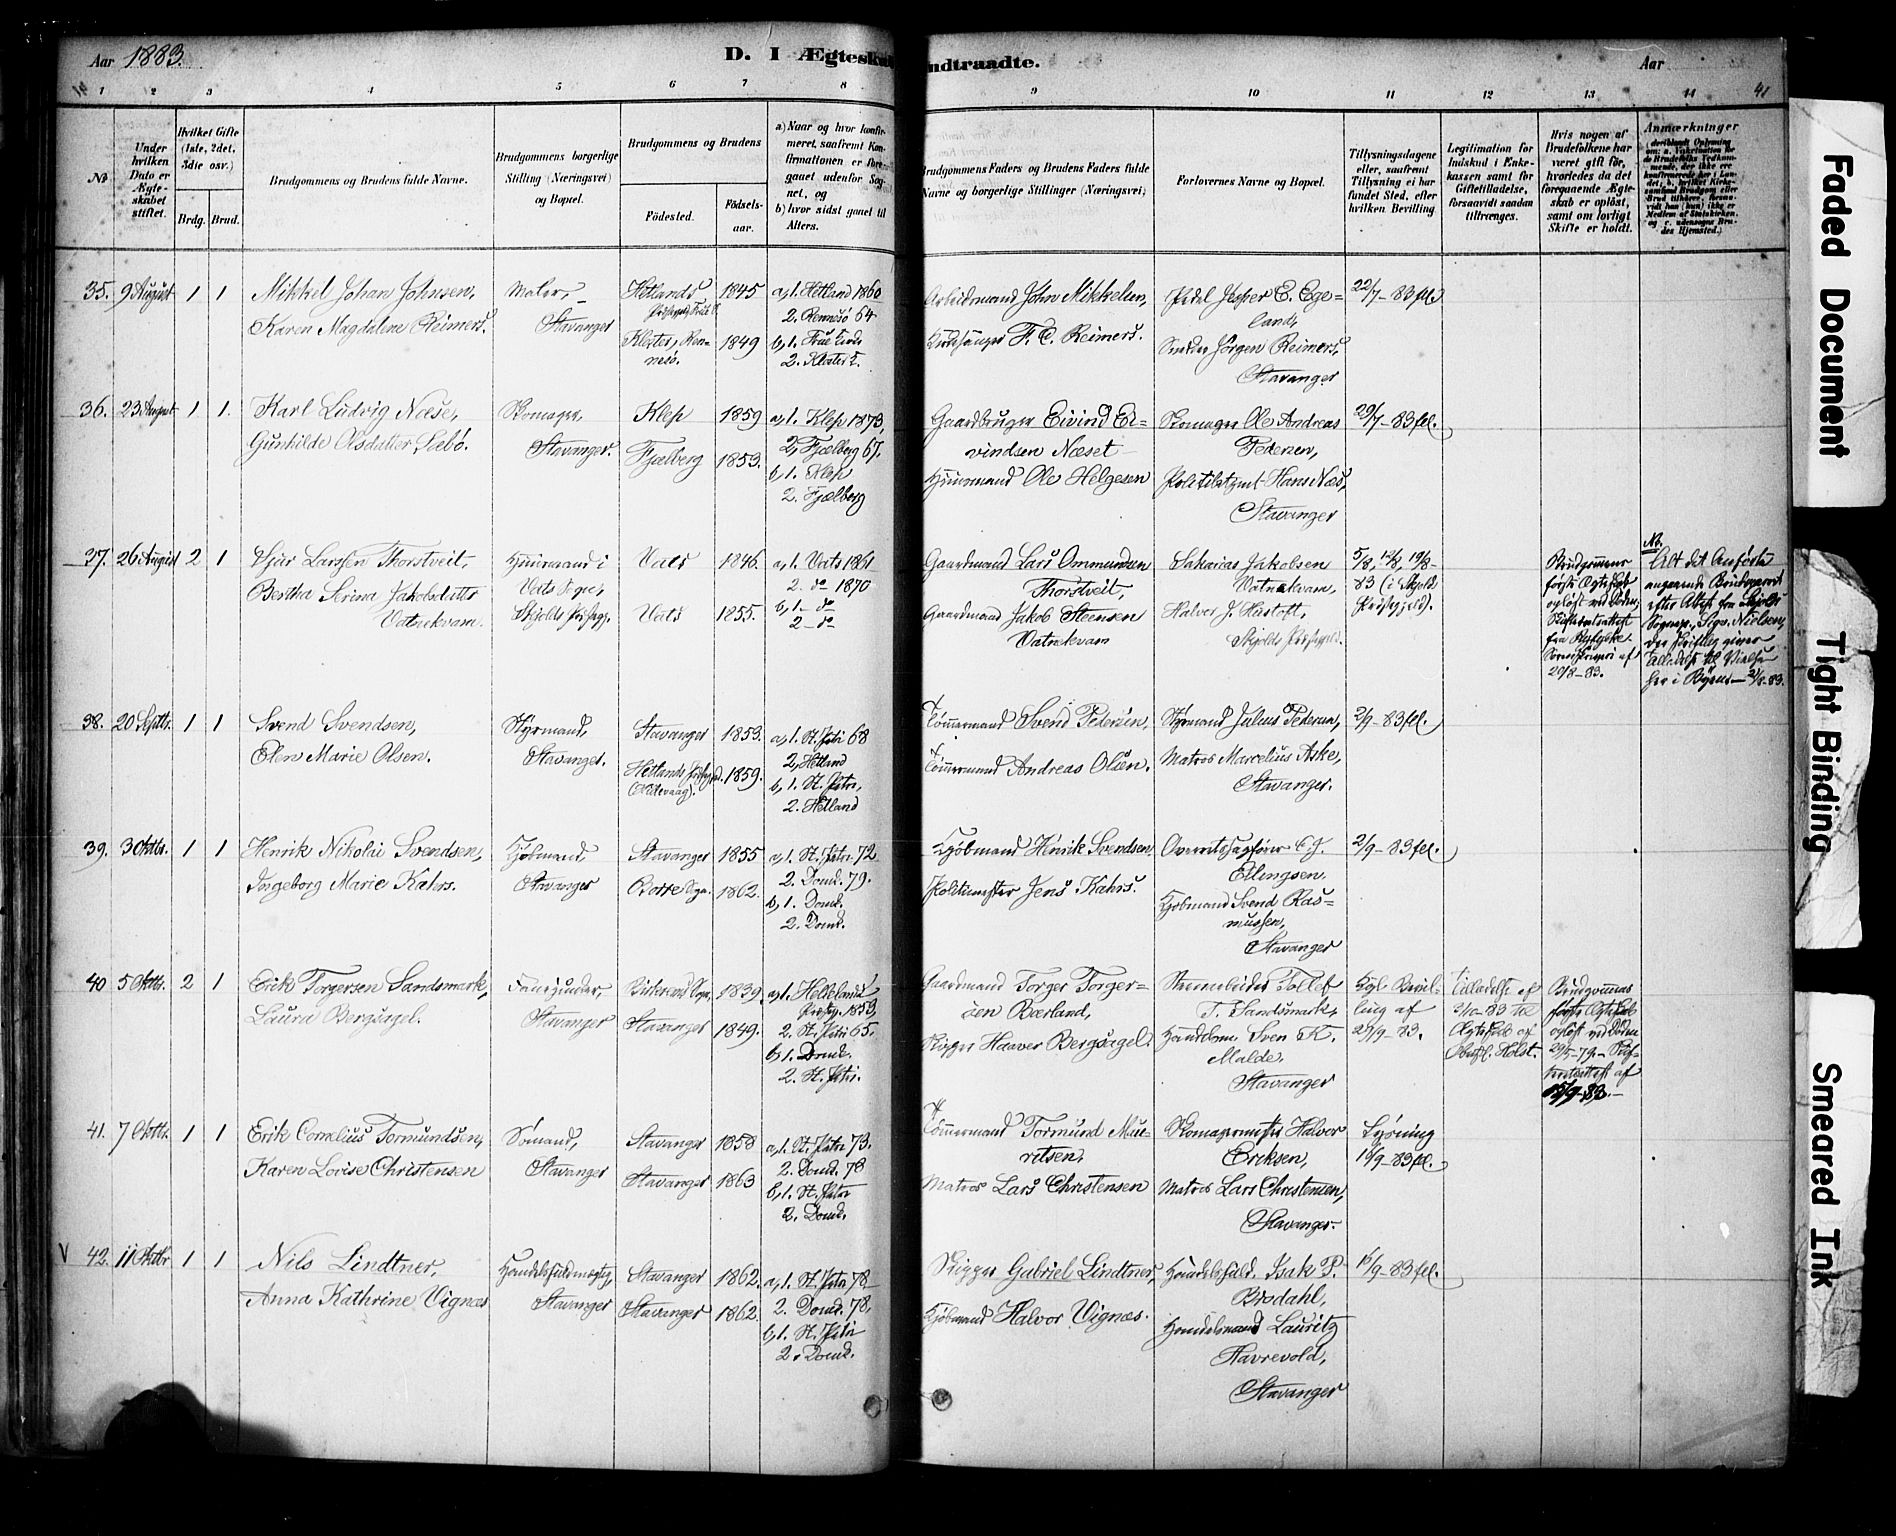 Aar 1883.
D. I Ægteskab Indtraadte.
Aar
1 2 3 4 5 6 7 8 9 10 11 12 13 14 41
No
Under hvilken Dato er Ægteskabet stiftet.
Hvilket Gifte (1ste, 2det, 3die osv.)
Brdg. Brud.
Brudgommens og Brudens fulde Navne.
Brudgommens borgerlige Stilling (Næringsvei) og Bopæl.
Brudgommens og Brudens
Fødested.
Fødselsaar.
a) Naar og hvor konfirmeret, saafremt Konfirmationen er foregaaet udenfor Sognet, og
b) hvor sidst gaaet til Alters.
Brudgommens Faders og Brudens Faders fulde Navne og borgerlige Stillinger (Næringsvei)
Forlovernes Navne og Bopæl.
Tillysningsdagene eller, saafremt Tillysning ei har fundet Sted, efter hvilken Bevilling.
Legitimation for Indskud i Enkekassen samt for Giftetilladelse, forsaavidt saadan tiltrænges.
Hvis nogen af Brudefolkene har været gift før, hvorledes da det foregaaende Ægteskab er opløst, samt om lovligt Skifte er holdt.
Anmærkninger
35. 9 August 1 1 Mikkel Johan Johnsen, Maler, Stavanger Hetlands 1845 a, 1. Hetland 1860
2. Rennesö 64
Karen Magdalene Reimers. Kloster, Rennesö. 1849 b, 1. Frue
2. Kloster
Arbeidsmand John Mikkelsen,
F. C. Reimers.
Pedel Jesper E. Egeland,
Jörgen Reimers,
Stavanger
22/7-83 fl.
36. 23 August 1 1. Karl Ludvig Næse, Skomager, Stavanger. Klep 1859 a, 1. Klep 1873,
2, Fjælberg 67.
Gunhilde Olsdatter Sebö. Fjælberg 1853. b, 1. Klep
2. Fjælberg
Gaardbruger Eivind Eivindsen Næset
Huusmand Ole Helgesen
Skomager Ole Andreas Pedersen,
Politibetjent Hans Næs,
Stavanger
29/7-83 fl.
37. 26 August 2 1 Sjur Larssen Thorstveit, Huusmand i Vats Sogn, Skjolds Præstegj. Vats 1846. a, 1. Vats 1861
2. do 1870
Bertha Serina Jakobsdatter Vatnekvam. Vats 1855. b, 1- do
2- do
Gaardmand Lars Ommundsen Thorstveit,
Gaardmand Jakob Steensen Vatnekvam
Sakarias Jakobsen Vatnekvam,
Halvor J. Hustoft,
Skjolds Præstegjeld.
5/8, 12/8, 19/8-83 (i Skjolds Præstegjeld).
Brudgommens første Ægteskab opløst ved Døden,
Skifteretsattest fra Ryfylke Sorenskriveri af
20/8-83.
Alt det Anførte angaaende Brudeparret efter Attest fra Skjolds Sognepr., Sigv. Nielsen,
der skriftlig giver Tilladelse til Vielse her i Byen
38. 20 Septbr. 1 1 Svend Svendsen, Styrmand, Stavanger. Stavanger 1853. a, 1. St. Petri 68
2, Hetland
Elen Marie Olsen. Hetlands Præstegjd. 1859. b, 1. St. Petri,
2. Hetland
Tömmermand Svend Pedersen,
Tömmermand Andreas Olsen.
Styrmand Julius Pedersen,
Matros Marcelius Aske,
Stavanger.
2/9-83 fl.
39. 3 Oktbr. 1 1 Henrik Nikolai Svendsen, Kjöbmand, Stavanger Stavanger 1855 a, 1. St. Petri 72
2. Domk. 79.
Ingeborg Marie Kahrs. Borre Sogn 1862. b, 1. Domk.
2. Domk.
Kjöbmand Henrik Svendsen
Politimester Jens Kahrs.
Overretssagfører Ellingsen.
Kjöbmand Svend Rasmussen,
Stavanger
2/9-83 fl.
40 5 Oktbr. 2 1 Erik Torgersen Sandsmark, Stavanger Birkreims Sogn, 1839. a, 1. Hellelands Præstegj. 1853,
2. St. Petri 65.
Laura Bergsagel. Stavanger 1849. b, 1. Domk.
2. St. Petri.
Gaardmand Torger Torgersen Bærland,
Skipper Haaver Bergsagel.
Tollef T. Sandsmark,
Sven K. Malde.
Stavanger
Kgl. Bevilling af
29/9-83.
Tilladelse af
3/10-83 til Ægteskab af Holst.
Brudgommens første Ægteskab opløst ved Døden
29/5-79.- Skifteretsattest af
15/9-83.-
41. 7 Oktbr. 1 1 Erik Cornelius Tormundsen, Sömand, Stavanger Stavanger 1858 a, 1. St. Petri 73.
2. Domk. 78
Karen Lovise Christensen Stavanger 1863 b, 1. St. Petri
2. Domk.
Tömmermand Tormund Mauritsen,
Matros Lars Christensen
Skomagermester Halvor Eriksen,
Matros Lars Christensen,
Stavanger.
Lysning
16/9-83 fl.
V 42. 11 Oktbr 1 1 Nils Lindtner, Handelsfuldmægtig, Stavanger Stavanger 1862. a, 1. St. Petri 78
2. Domk. 78,
Anna Kathrine Vignæs Stavanger 1862. b, 1. St. Petri
2. Domk.
Skipper Gabriel Lindtner,
Kjöbmand Halvor Vignæs.
Handelsfuld. Isak P. Brodahl,
Handelsmand Lauritz Havrevold,
Stavanger
16/9-83 fl.
Faded Document
Tight Binding
Smeared Ink